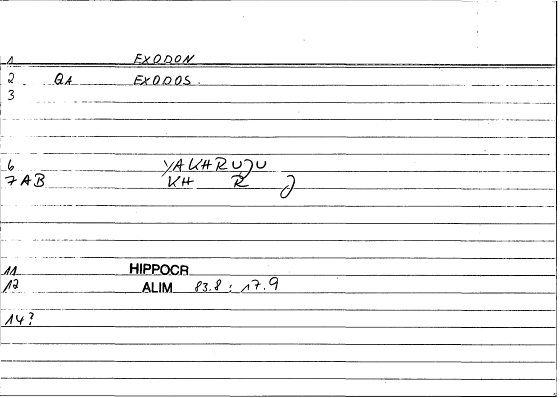 1 EXODON
2 QA EXODOS.
3
6 YAKHRUJU
7AB KH R J
11 HIPPOCR
12 ALIM 83.8 : 17.9
14?